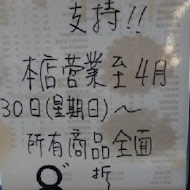 支持!!
本店營業至4月
30日(星期日)～
所有商品全面
8折